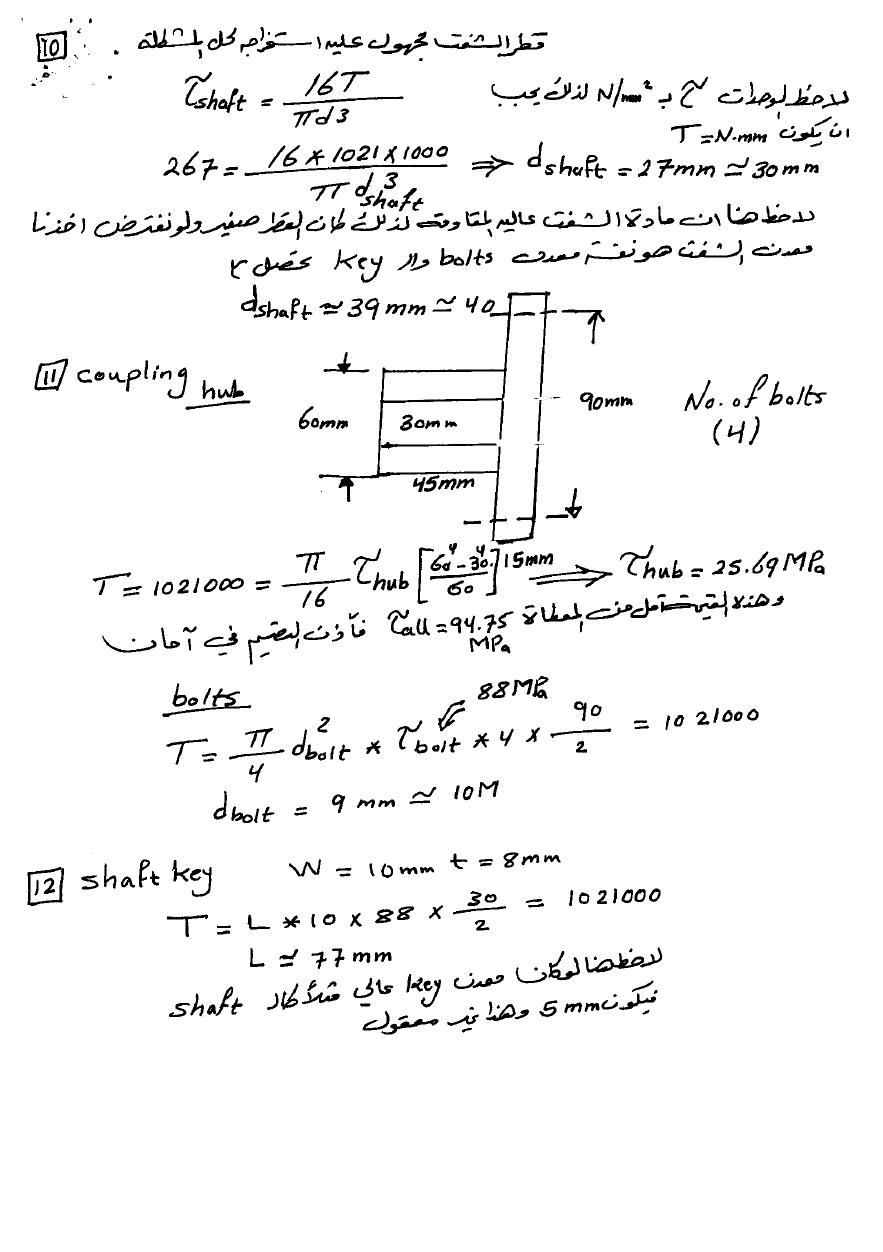 10 قطر الشفت مجهول عليه استخراجه لحل المشكلة .
τshaft = 16T / πd3
لاحظ الوحدات τ بـ N/mm² لذلك يجب
ان يكون T=N.mm
267 = 16 * 1021 x 1000 / π d³shaft ⇒ dshaft = 27mm ≃ 30mm
لاحظ هنا ان مادة الشفت عالية المقاومة لذلك كان القطر صغير ولو نفترض اخذنا
معدن الشفت هو نفسة معدن bolts والـ key نحصل
dshaft ≃ 39mm ≃ 40
11 coupling
hub
60mm
30mm
45mm
90mm
No. of bolts
(4)
T = 1021000 = π/16 τhub [60⁴ - 30⁴ / 60] 15mm ⇒ τhub = 25.69 MPa
وهذه القيمة اقل من المعطاة τall = 94.75 MPa فأذن التصميم في آمان
bolts
88MPa
T = π/4 d²bolt * τbolt * 4 x 90/2 = 1021000
dbolt = 9 mm ≃ 10M
12 shaft key W = 10mm t = 8mm
T = L * 10 x 88 x 30/2 = 1021000
L ≃ 77mm
لاحظ هنا لو كان معدن key عالي shaft
فيكون 5mm وهذا غير معقول